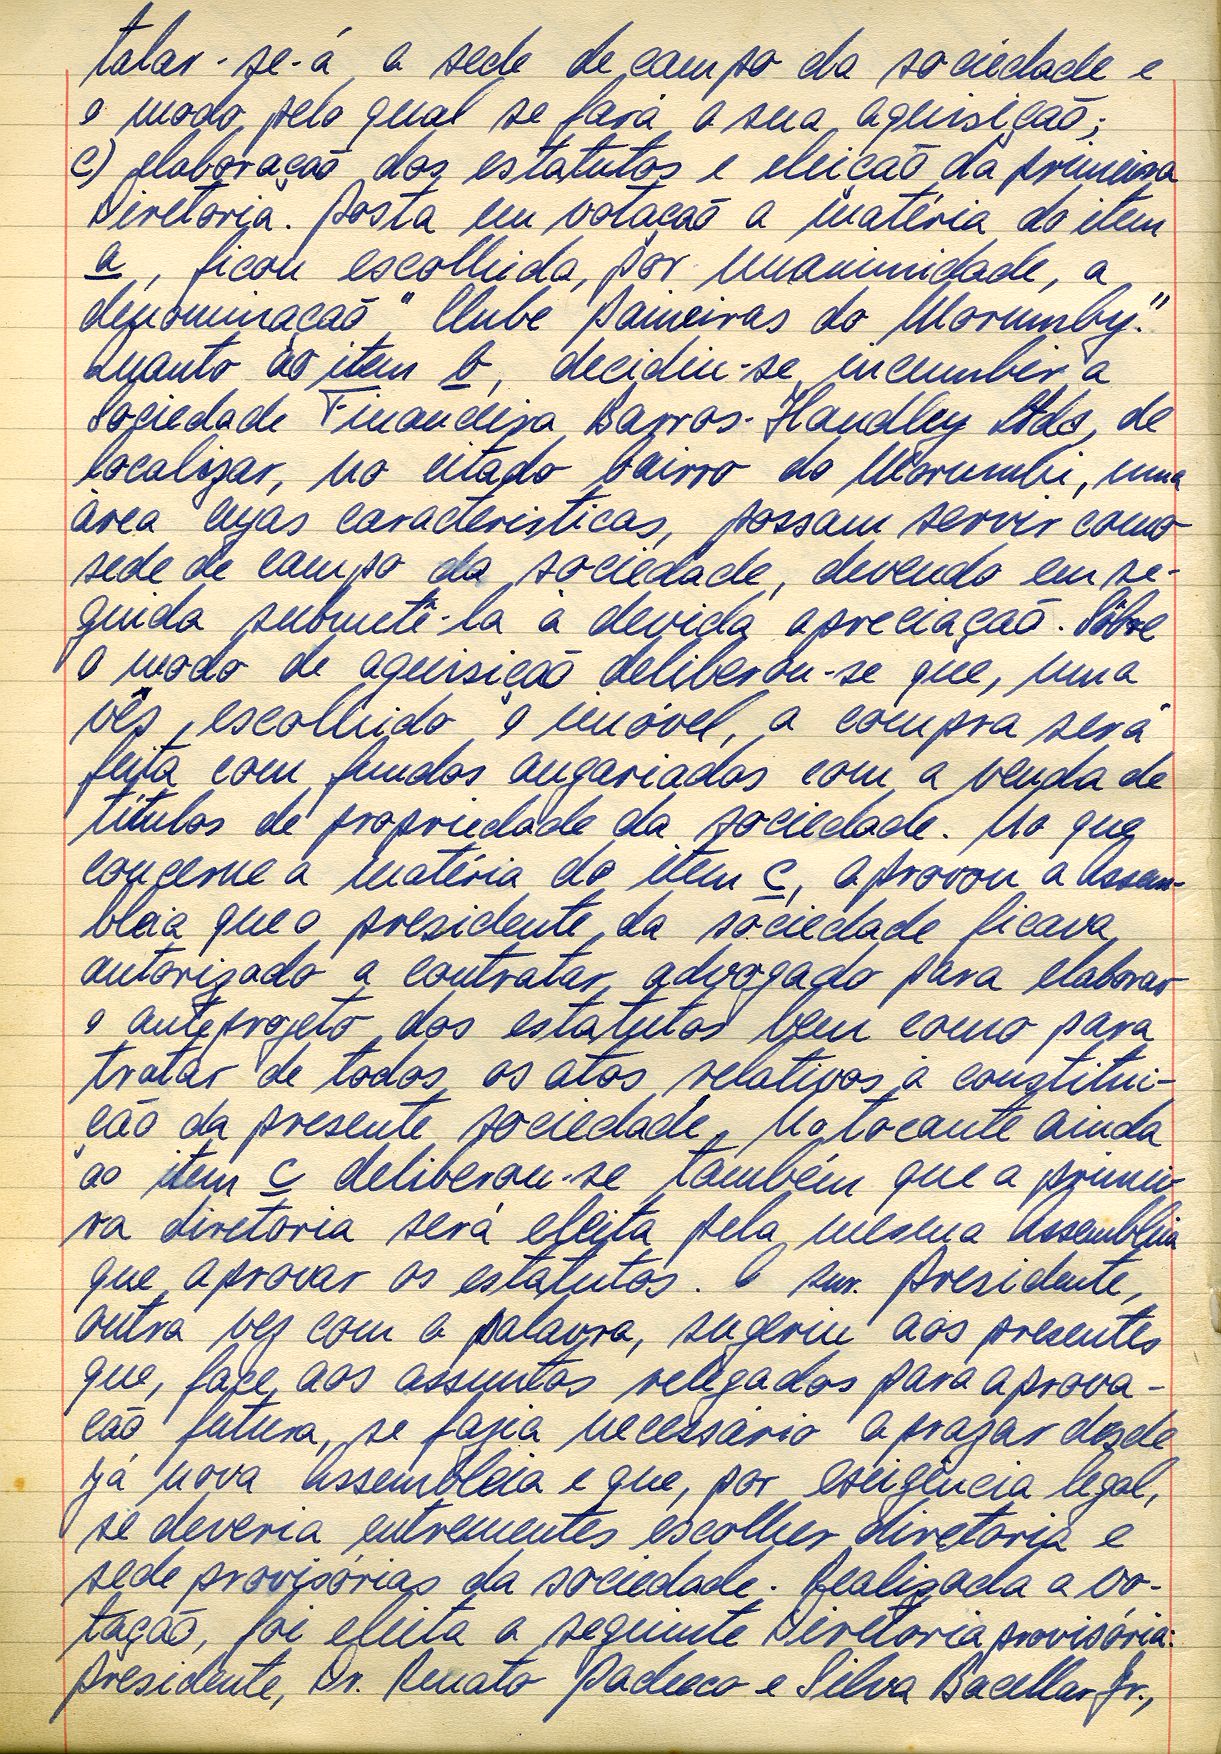 talar-se-á a sede de campo da sociedade e
o modo pelo qual se fará a sua aquisição;
c) elaboração dos estatutos e eleição da primeira
Diretoria. Posta em votação a matéria do item
a, ficou escolhida, por unanimidade, a
denominação "Clube Paineiras do Morumby."
Quanto ao item b, decidiu-se incumbir a
Sociedade Financeira Barros-Handley Ltda, de
localizar, no citado bairro do Morumbi, uma
área cujas caracteristicas, possam servir como
sede de campo da sociedade, devendo em se-
guida submetê-la à devida apreciação. Sôbre
o modo de aquisição deliberou-se que, uma
vês escolhido o imóvel, a compra será
feita com fundos angariados com a venda de
títulos de propriedade da sociedade. No que
concerne a matéria do item c, aprovou a Assem-
bleia que o presidente da sociedade ficava
autorizado a contratar advogado para elaborar
o anteprojeto dos estatutos bem como para
tratar de todos os atos relativos à constitui-
ção da presente sociedade. No tocante ainda
ao item c deliberou-se também que a primei-
ra diretoria será eleita pela mesma Assembleia
que aprovar os estatutos. O snr. Presidente,
outra vez com a palavra, sugeriu aos presentes
que, face aos assuntos relegados para aprova-
ção futura, se fazia necessário aprazar desde
já nova Assembleia e que, por exigência legal,
se deveria entrementes escolher diretoria e
sede provisórias da sociedade. Realizada a vo-
tação, foi eleita a seguinte Diretoria provisória:
presidente, Dr. Renato Pacheco e Silva Bacellar Jr.,